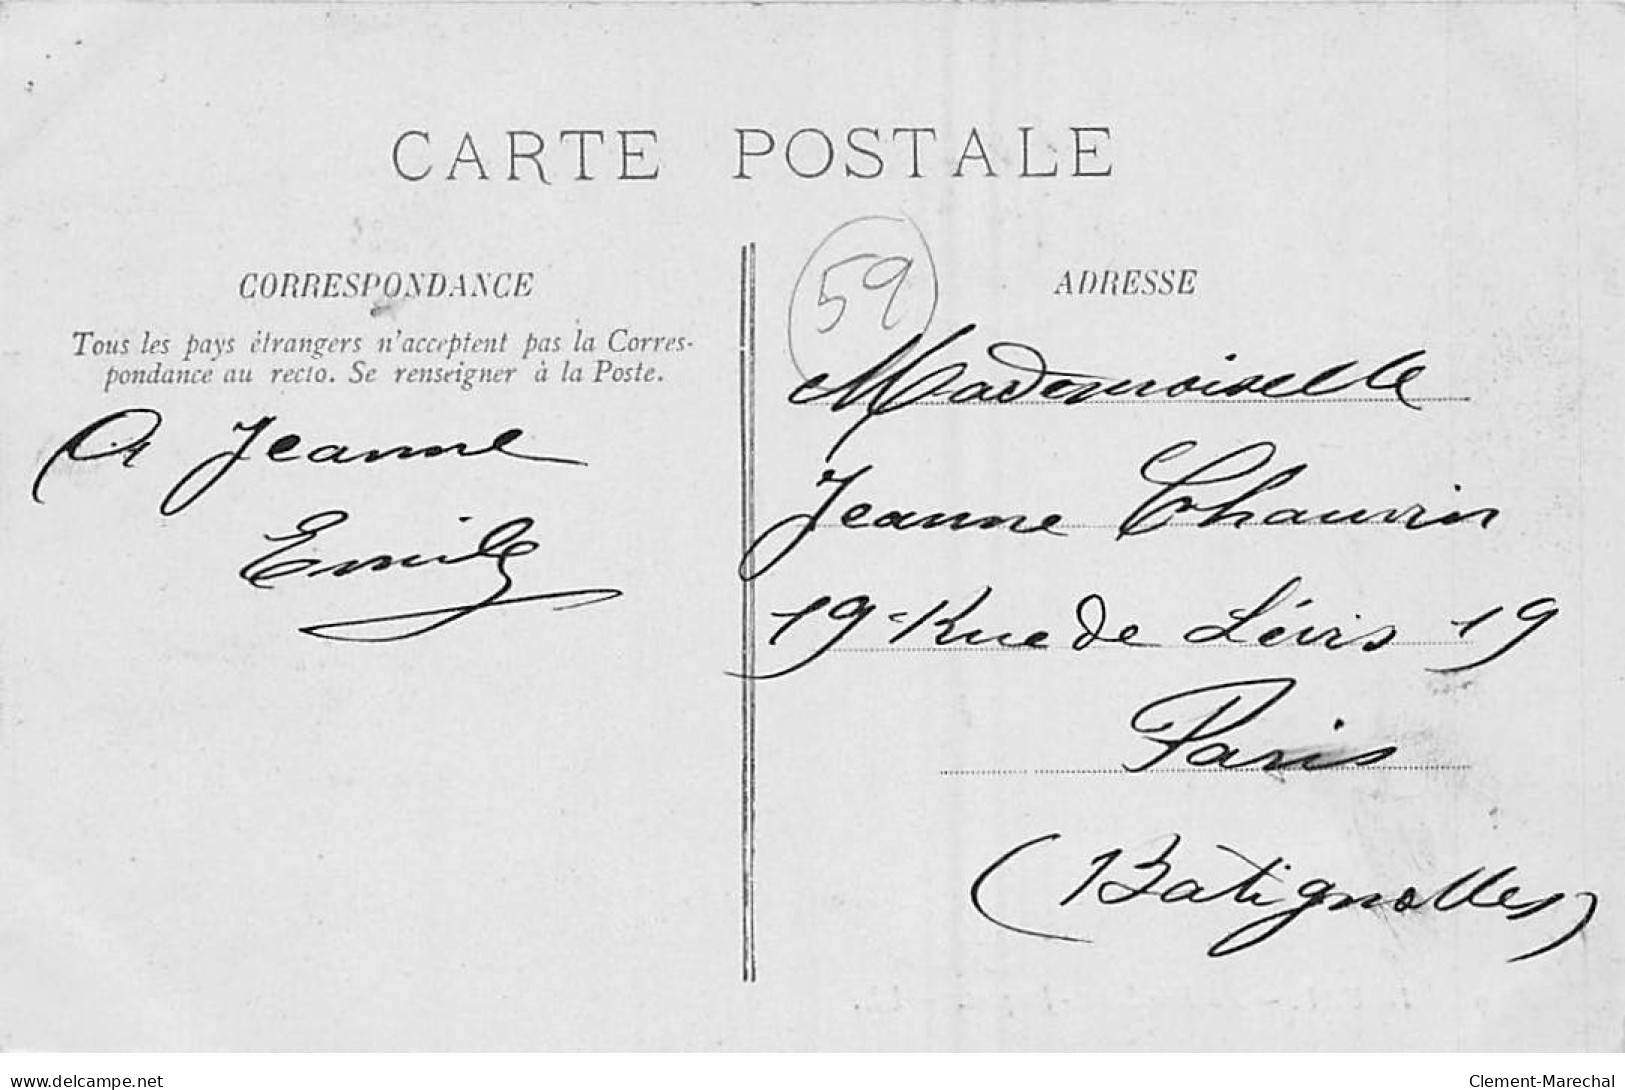 CARTE POSTALE
CORRESPONDANCE
Tous les pays étrangers n'acceptent pas la Corres-
pondance au recto. Se renseigner à la Poste.
A Jeanne
Emile
59
ADRESSE
Mademoiselle
Jeanne Chauvin
19 Rue de Lévis 19
Paris
(Batignolles)
www.delcampe.net
Clement-Marechal